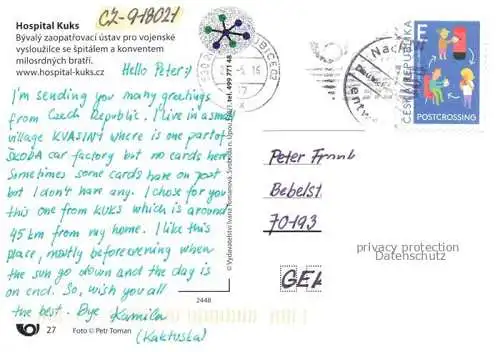 Hospital Kuks
Bývalý zaopatřovací ústav pro vojenské
vysloužilce se špitálem a konventem
milosrdných bratří.
www.hospital-kuks.cz
CZ-918021
Hello Peter :)
I'm sending you many greetings
from Czech Republic. I live in a small
village KVASINY where is one part of
ŠKODA car factory but no cards here.
Sometimes some cards have on post
but I don't have any. I chose for you
this one from KUKS which is around
45 km from my home. I like this
place, mostly before evening when
the sun go down and the day is
on end. So, wish you all
the best. Bye Kamila
(Kaktuska)
27 Foto © Petr Toman
2448
© Vydavatelství Ivana Tomanová, Svoboda n. Úpou, tel. 499 771 48
E
ČESKÁ REPUBLIKA
POSTCROSSING
Peter
Bebelst
70193
GE
privacy protection
Datenschutz